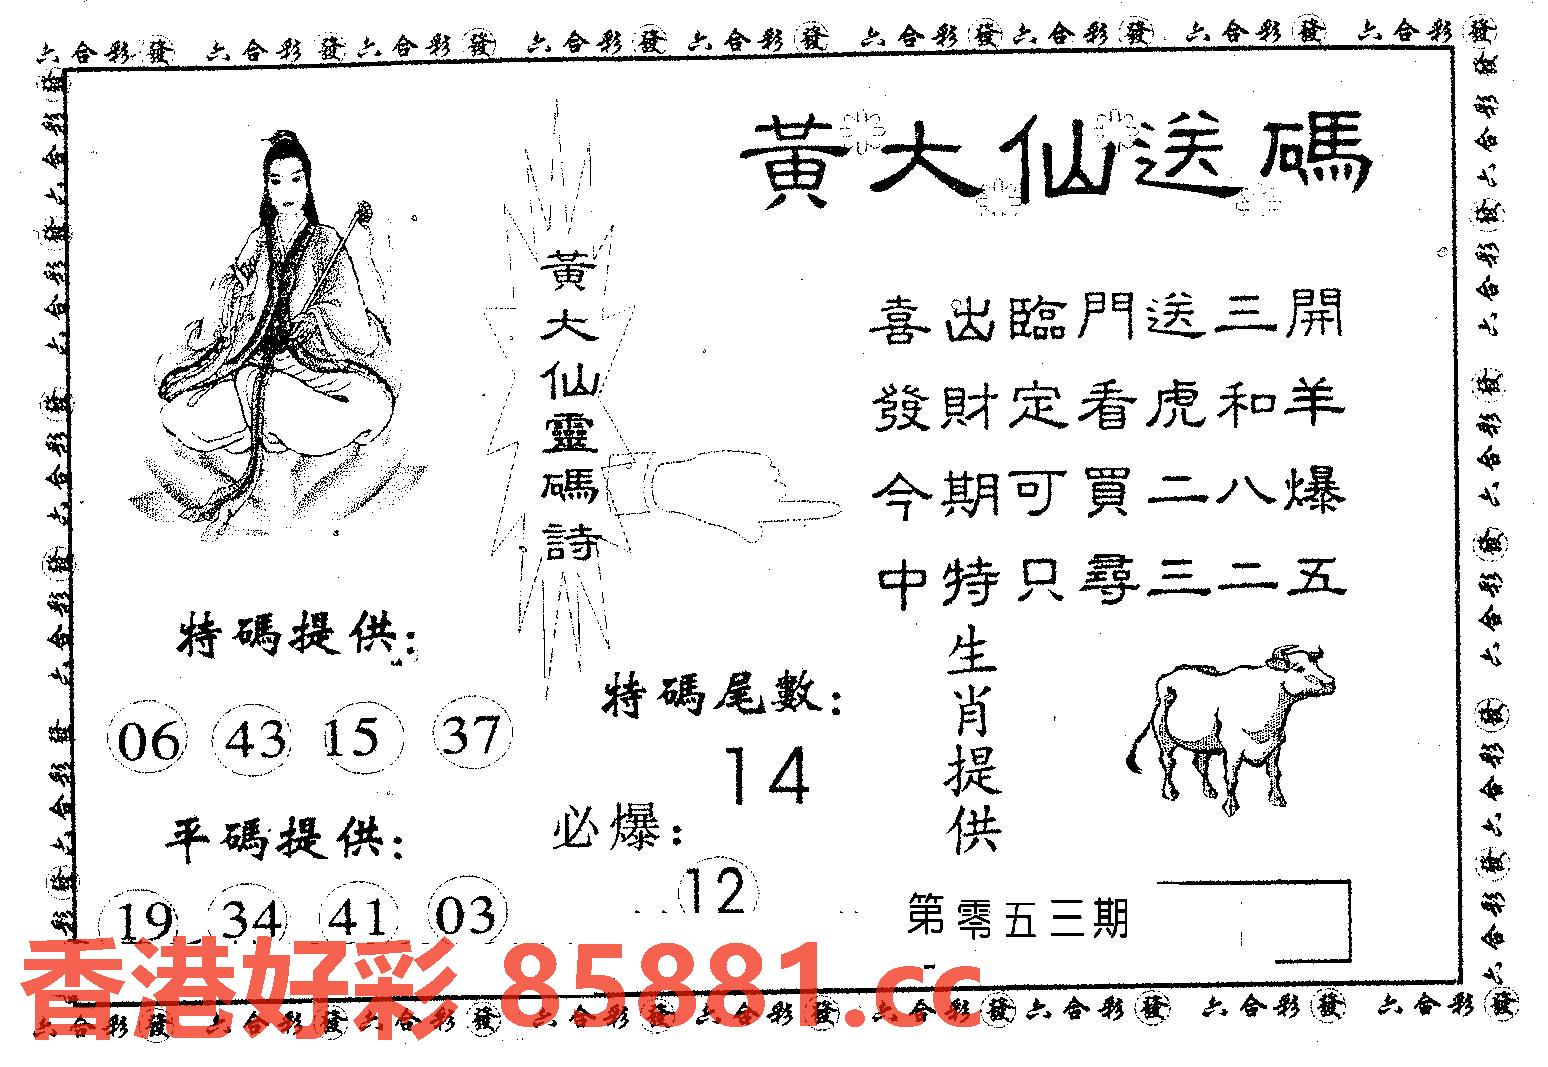 六合彩發 六合彩發 六合彩發 六合彩發 六合彩發 六合彩發 六合彩發 六合彩發 六合彩發
黃大仙送碼
黃大仙靈碼詩
喜出臨門送三開
發財定看虎和羊
今期可買二八爆
中特只尋三二五
特碼提供：
06 43 15 37
平碼提供：
19 34 41 03
特碼尾數：
14
必爆：
12
生肖提供
第零五三期
香港好彩 85881.cc
六合彩發 六合彩發 六合彩發 六合彩發 六合彩發 六合彩發 六合彩發 六合彩發 六合彩發